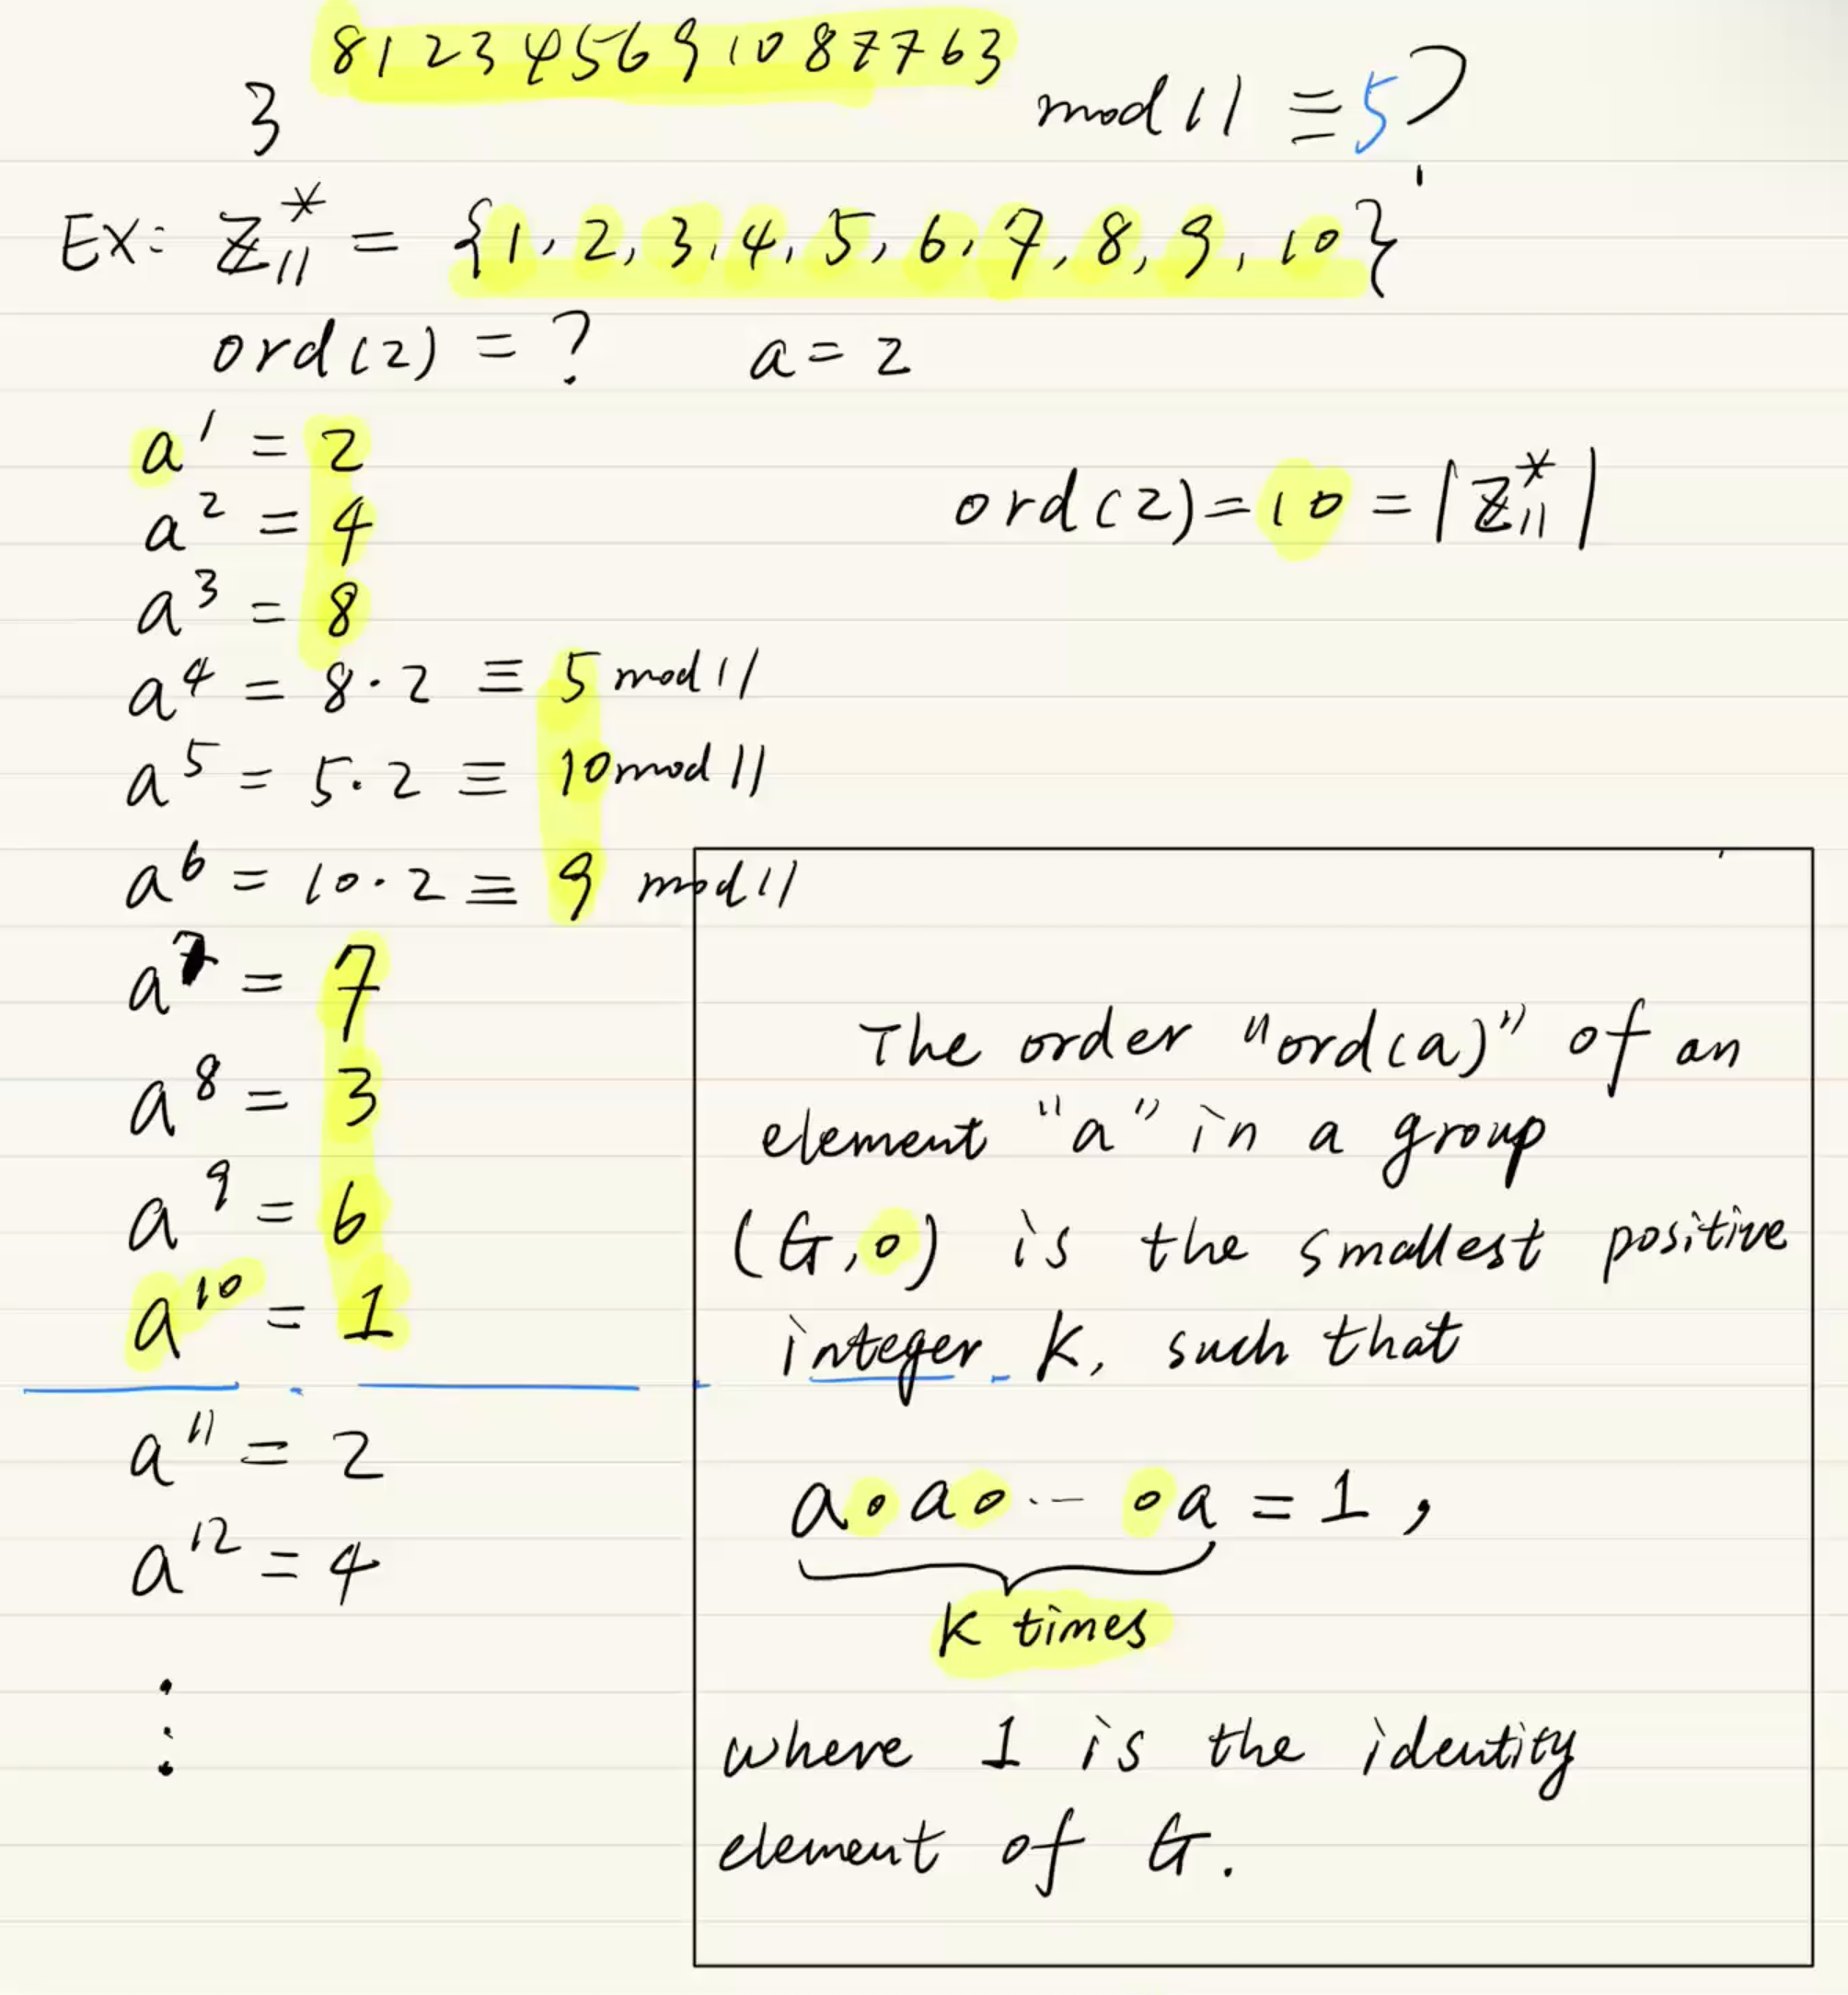 3^81234569 1087763 mod 11 ≡ 5?
EX: ℤ₁₁* = {1, 2, 3, 4, 5, 6, 7, 8, 9, 10}
ord(2) = ? a = 2
a¹ = 2
a² = 4
ord(2) = 10 = |ℤ₁₁*|
a³ = 8
a⁴ = 8·2 ≡ 5 mod 11
a⁵ = 5·2 ≡ 10 mod 11
a⁶ = 10·2 ≡ 9 mod 11
a⁷ = 7
a⁸ = 3
a⁹ = 6
a¹⁰ = 1
a¹¹ = 2
a¹² = 4
⋮
The order "ord(a)" of an
element "a" in a group
(G, o) is the smallest positive
integer K, such that
a o a o ... o a = 1,
K times
where 1 is the identity
element of G.